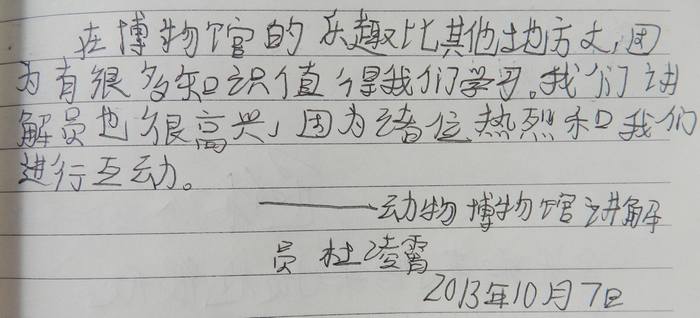 在博物馆的乐趣比其他地方大,因
为有很多知识值得我们学习。我们讲
解员也很高兴,因为诸位热烈和我们
进行互动。
——动物博物馆讲解
员 杜凌霄
2013年10月7日